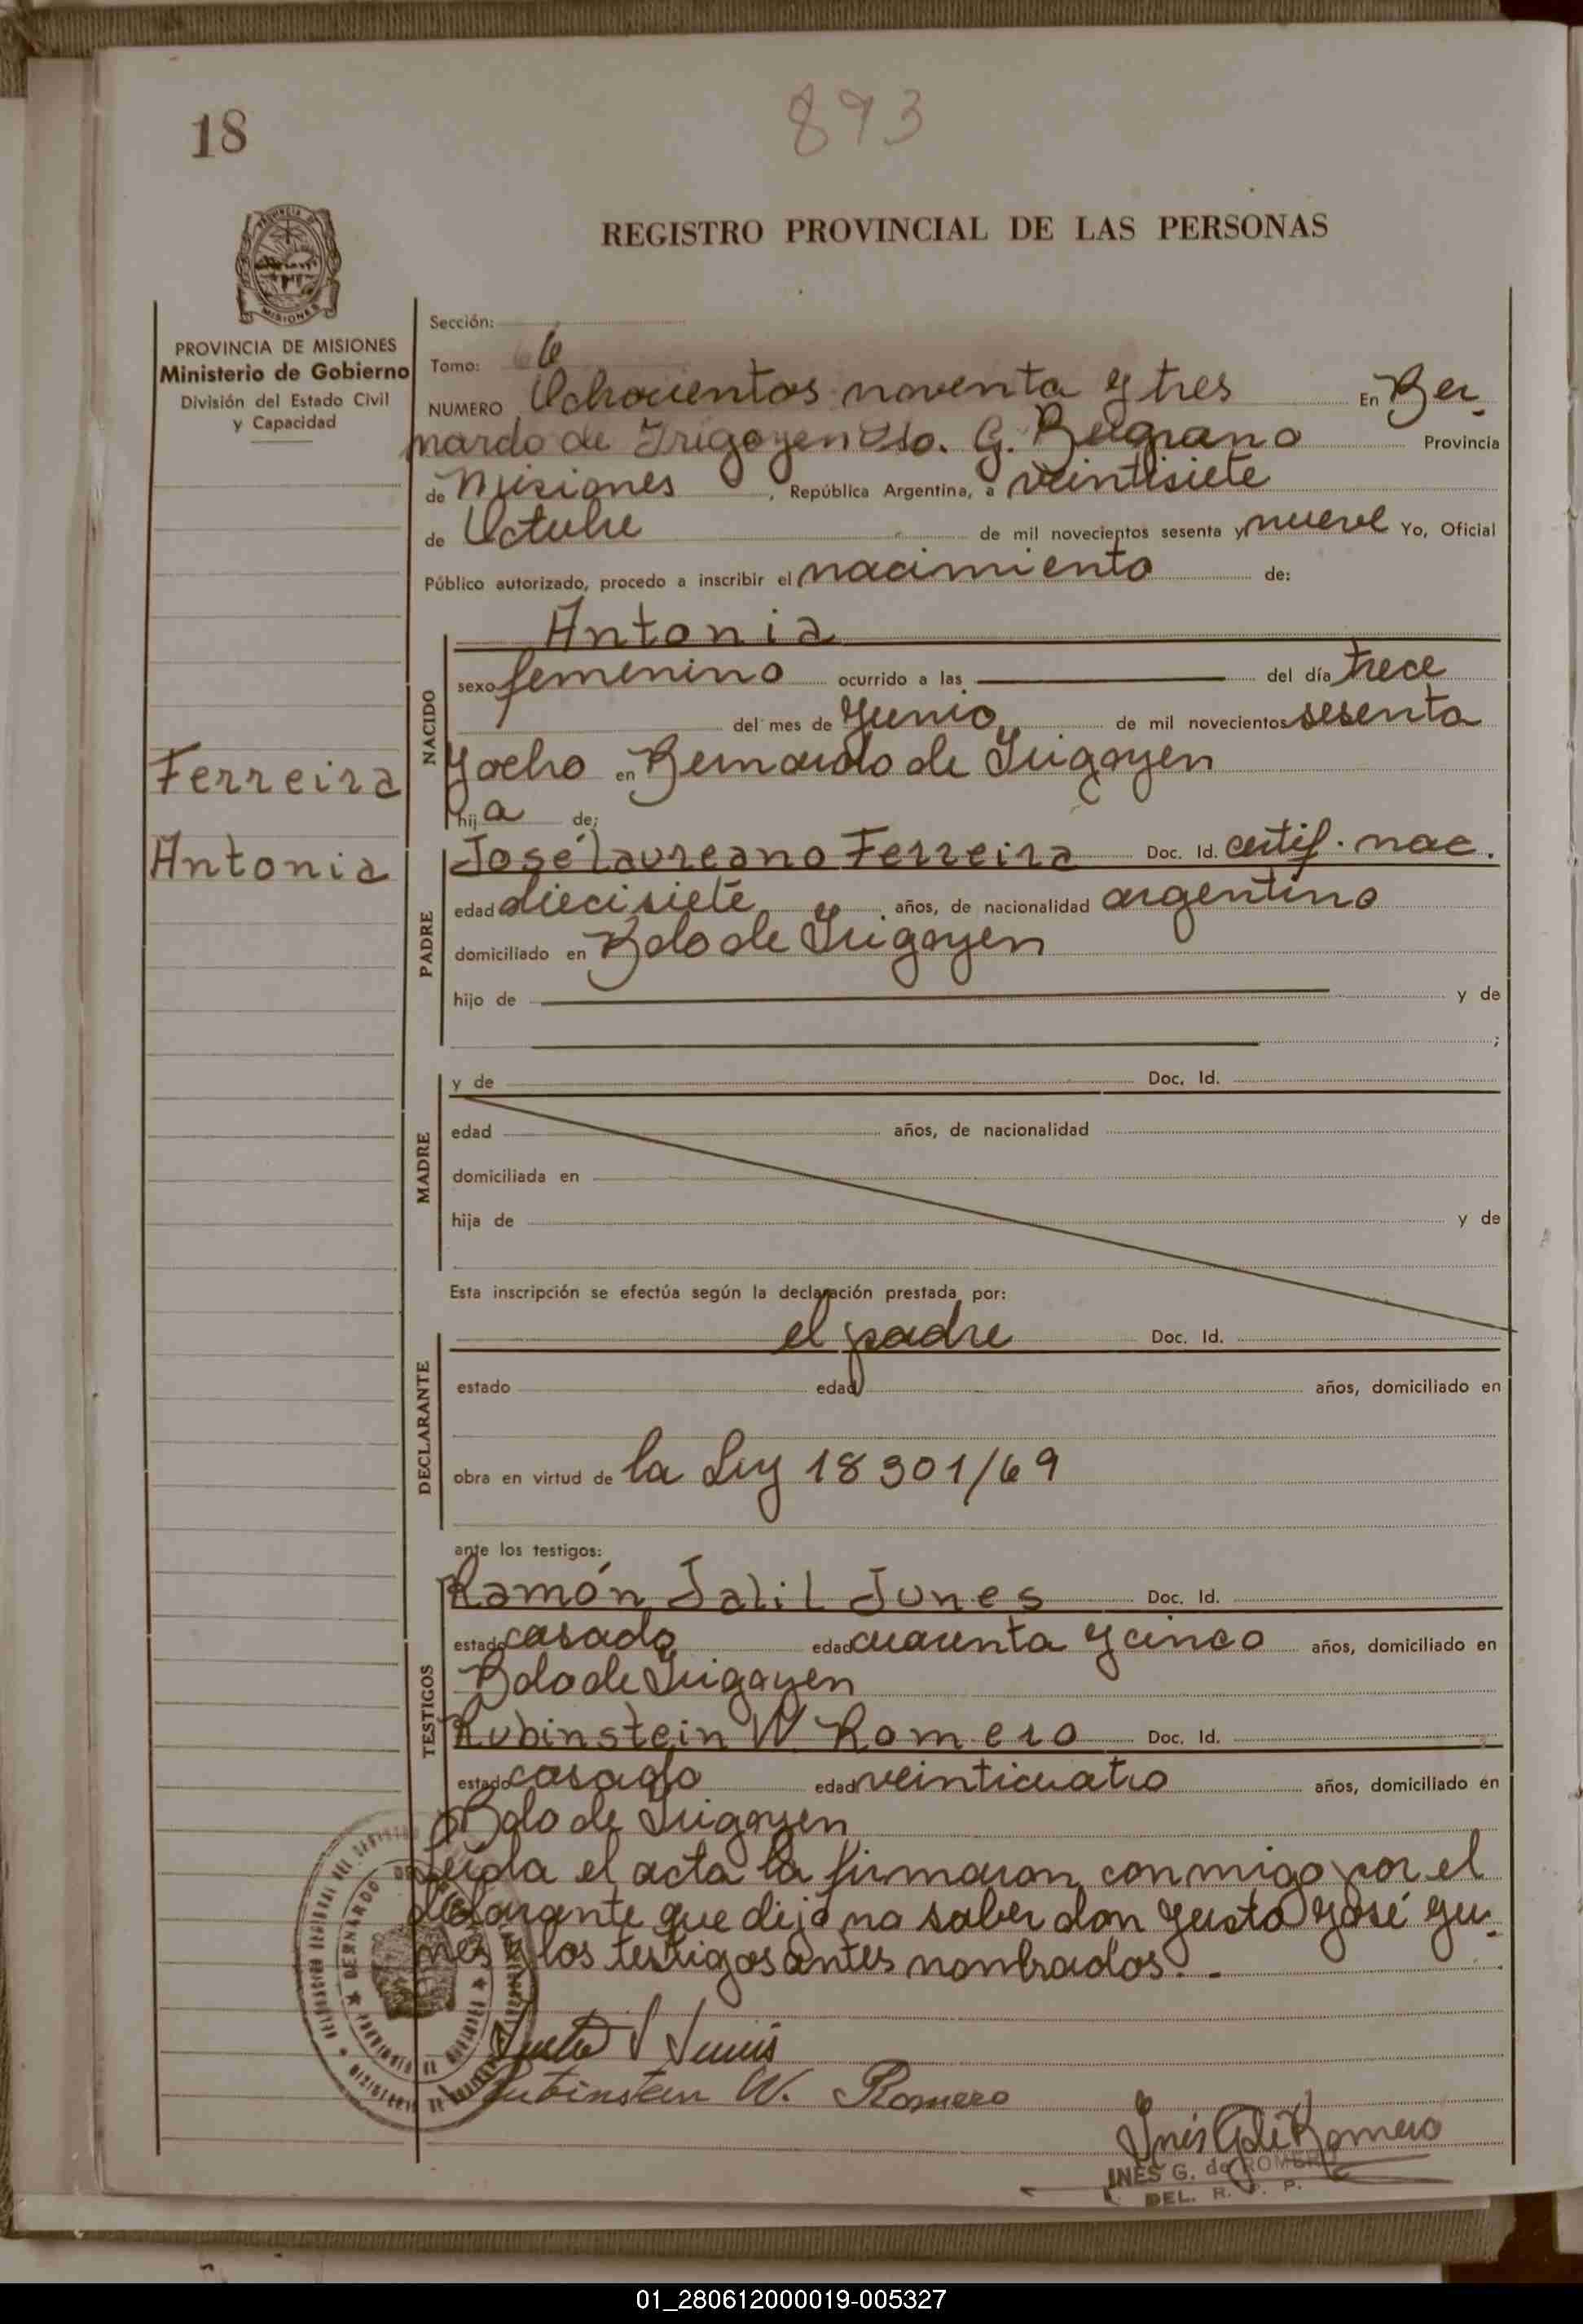 18
893
REGISTRO PROVINCIAL DE LAS PERSONAS
MISIONES
PROVINCIA DE MISIONES
Ministerio de Gobierno
División del Estado Civil
y Capacidad
Ferreira
Antonia
Sección:
Tomo: 6
NUMERO Ochocientos noventa y tres En Ber-
nardo de Irigoyen Dto. G. Belgrano Provincia
de Misiones, República Argentina, a veintisiete
de Octubre de mil novecientos sesenta y nueve Yo, Oficial
Público autorizado, procedo a inscribir el nacimiento de:
NACIDO
Antonia
sexo femenino ocurrido a las del día trece
del mes de Junio de mil novecientos sesenta
y ocho en Bernardo de Irigoyen
hija de:
PADRE
José Laureano Ferreira Doc. Id. certif. nac.
edad diecisiete años, de nacionalidad argentino
domiciliado en Bdo de Irigoyen
hijo de y de
;
MADRE
y de Doc. Id.
edad años, de nacionalidad
domiciliada en
hija de y de
Esta inscripción se efectúa según la declaración prestada por:
DECLARANTE
el padre Doc. Id.
estado edad años, domiciliado en
obra en virtud de la Ley 18301/69
ante los testigos:
TESTIGOS
Ramón Jalil Junes Doc. Id.
estado casado edad cuarenta y cinco años, domiciliado en
Bdo de Irigoyen
Rubinstein W Romero Doc. Id.
estado casado edad veinticuatro años, domiciliado en
Bdo de Irigoyen
Leida el acta la firmaron conmigo por el
declarante que dijo no saber don Justo José Ju-
nes y los testigos antes nombrados. -
Justo J Junes
Rubinstein W. Romero
Inés G de Romero
INES G. de ROMERO
DEL. R. P. P.
01_280612000019-005327